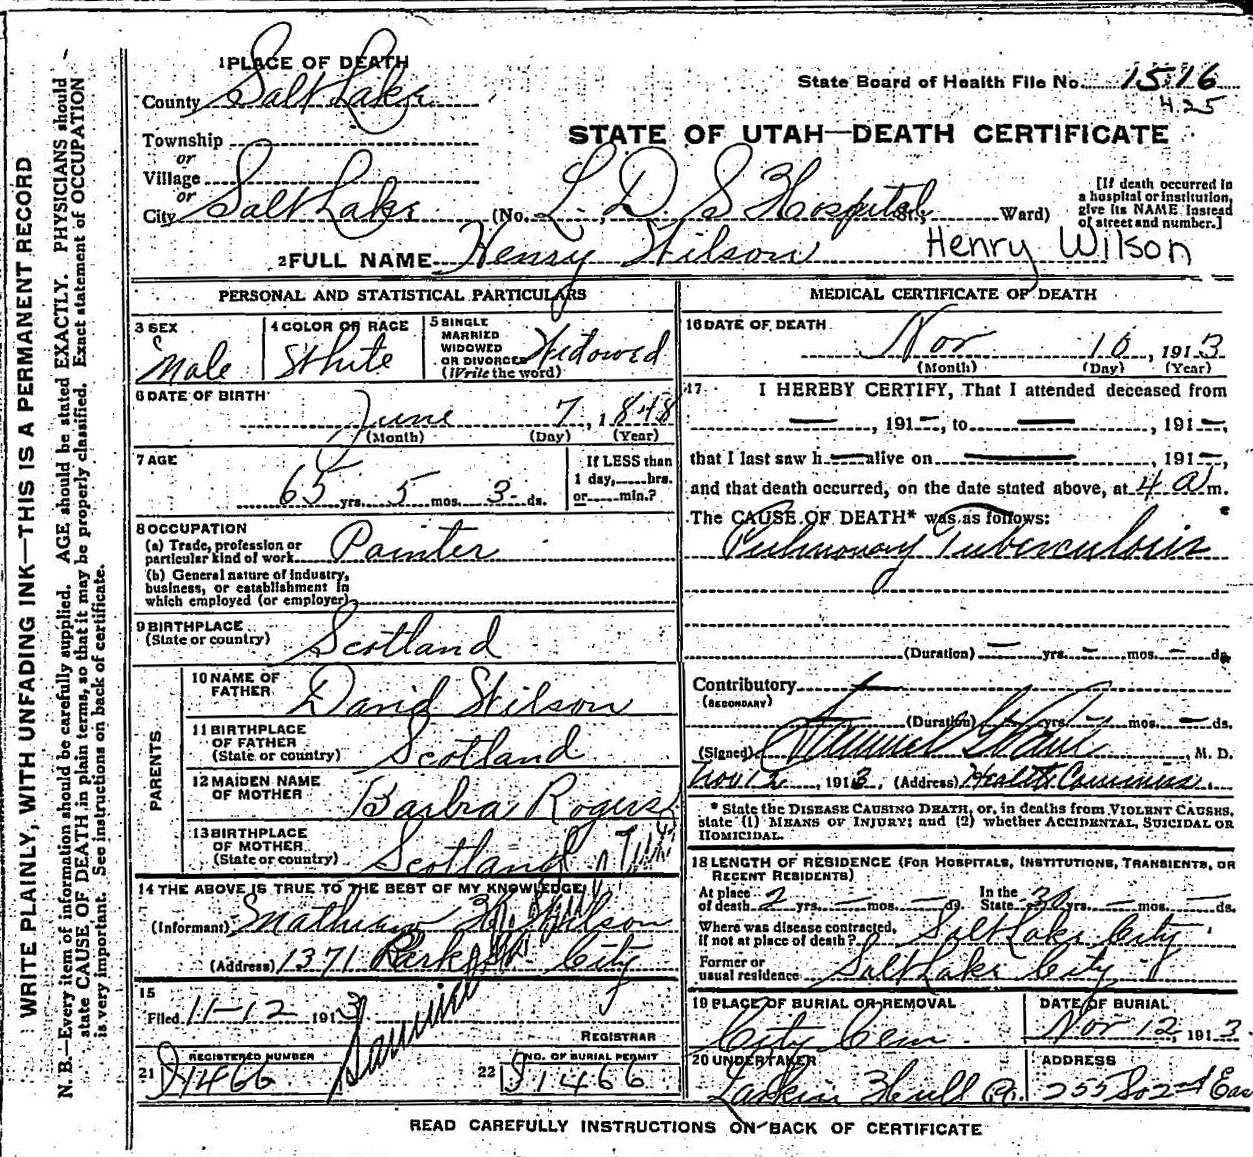 WRITE PLAINLY, WITH UNFADING INK—THIS IS A PERMANENT RECORD
N. B.—Every item of information should be carefully supplied. AGE should be stated EXACTLY. PHYSICIANS should
state CAUSE OF DEATH in plain terms, so that it may be properly classified. Exact statement of OCCUPATION
is very important. See instructions on back of certificate.
1 PLACE OF DEATH
County Salt Lake
State Board of Health File No. 1516
425
Township
or
Village
or
City Salt Lake
STATE OF UTAH—DEATH CERTIFICATE
(No. L. D. S Hospital St., Ward)
[If death occurred in
a hospital or institution,
give its NAME instead
of street and number.]
2 FULL NAME Henry Wilson Henry Wilson
PERSONAL AND STATISTICAL PARTICULARS
3 SEX
Male
4 COLOR OR RACE
White
5 SINGLE
MARRIED
WIDOWED
OR DIVORCED
(Write the word)
Widowed
6 DATE OF BIRTH
June 7, 1848
(Month) (Day) (Year)
7 AGE
65 yrs. 5 mos. 3 ds.
If LESS than
1 day, hrs.
or min.?
8 OCCUPATION
(a) Trade, profession or
particular kind of work Painter
(b) General nature of industry,
business, or establishment in
which employed (or employer)
9 BIRTHPLACE
(State or country) Scotland
PARENTS
10 NAME OF
FATHER David Wilson
11 BIRTHPLACE
OF FATHER
(State or country) Scotland
12 MAIDEN NAME
OF MOTHER Barbra Rogers
13 BIRTHPLACE
OF MOTHER
(State or country) Scotland
14 THE ABOVE IS TRUE TO THE BEST OF MY KNOWLEDGE
(Informant) Wilson
(Address) 1371 Park City
15
Filed 11-12 1913
REGISTRAR
21 REGISTERED NUMBER
S 1466
22 NO. OF BURIAL PERMIT
S 1466
MEDICAL CERTIFICATE OF DEATH
16 DATE OF DEATH
Nov 10, 1913
(Month) (Day) (Year)
17 I HEREBY CERTIFY, That I attended deceased from
— , 191 —, to — , 191 —,
that I last saw h — alive on — , 191 —,
and that death occurred, on the date stated above, at 4 a m.
The CAUSE OF DEATH* was as follows:
Pulmonary Tuberculosis
(Duration) — yrs. — mos. — ds.
Contributory
(SECONDARY)
(Duration) yrs. — mos. — ds.
(Signed) , M. D.
Nov 12, 1913, (Address) Health
* State the DISEASE CAUSING DEATH, or, in deaths from VIOLENT CAUSES,
state (1) MEANS OF INJURY; and (2) whether ACCIDENTAL, SUICIDAL OR
HOMICIDAL.
18 LENGTH OF RESIDENCE (FOR HOSPITALS, INSTITUTIONS, TRANSIENTS, OR
RECENT RESIDENTS)
At place
of death 2 yrs. — mos. — ds. In the
State 30 yrs. — mos. — ds.
Where was disease contracted,
if not at place of death? Salt Lake City
Former or
usual residence Salt Lake City
19 PLACE OF BURIAL OR REMOVAL
City Cem
DATE OF BURIAL
Nov 12, 1913
20 UNDERTAKER
Larkin Hull Co.
ADDRESS
255 So 2nd Eas
READ CAREFULLY INSTRUCTIONS ON BACK OF CERTIFICATE